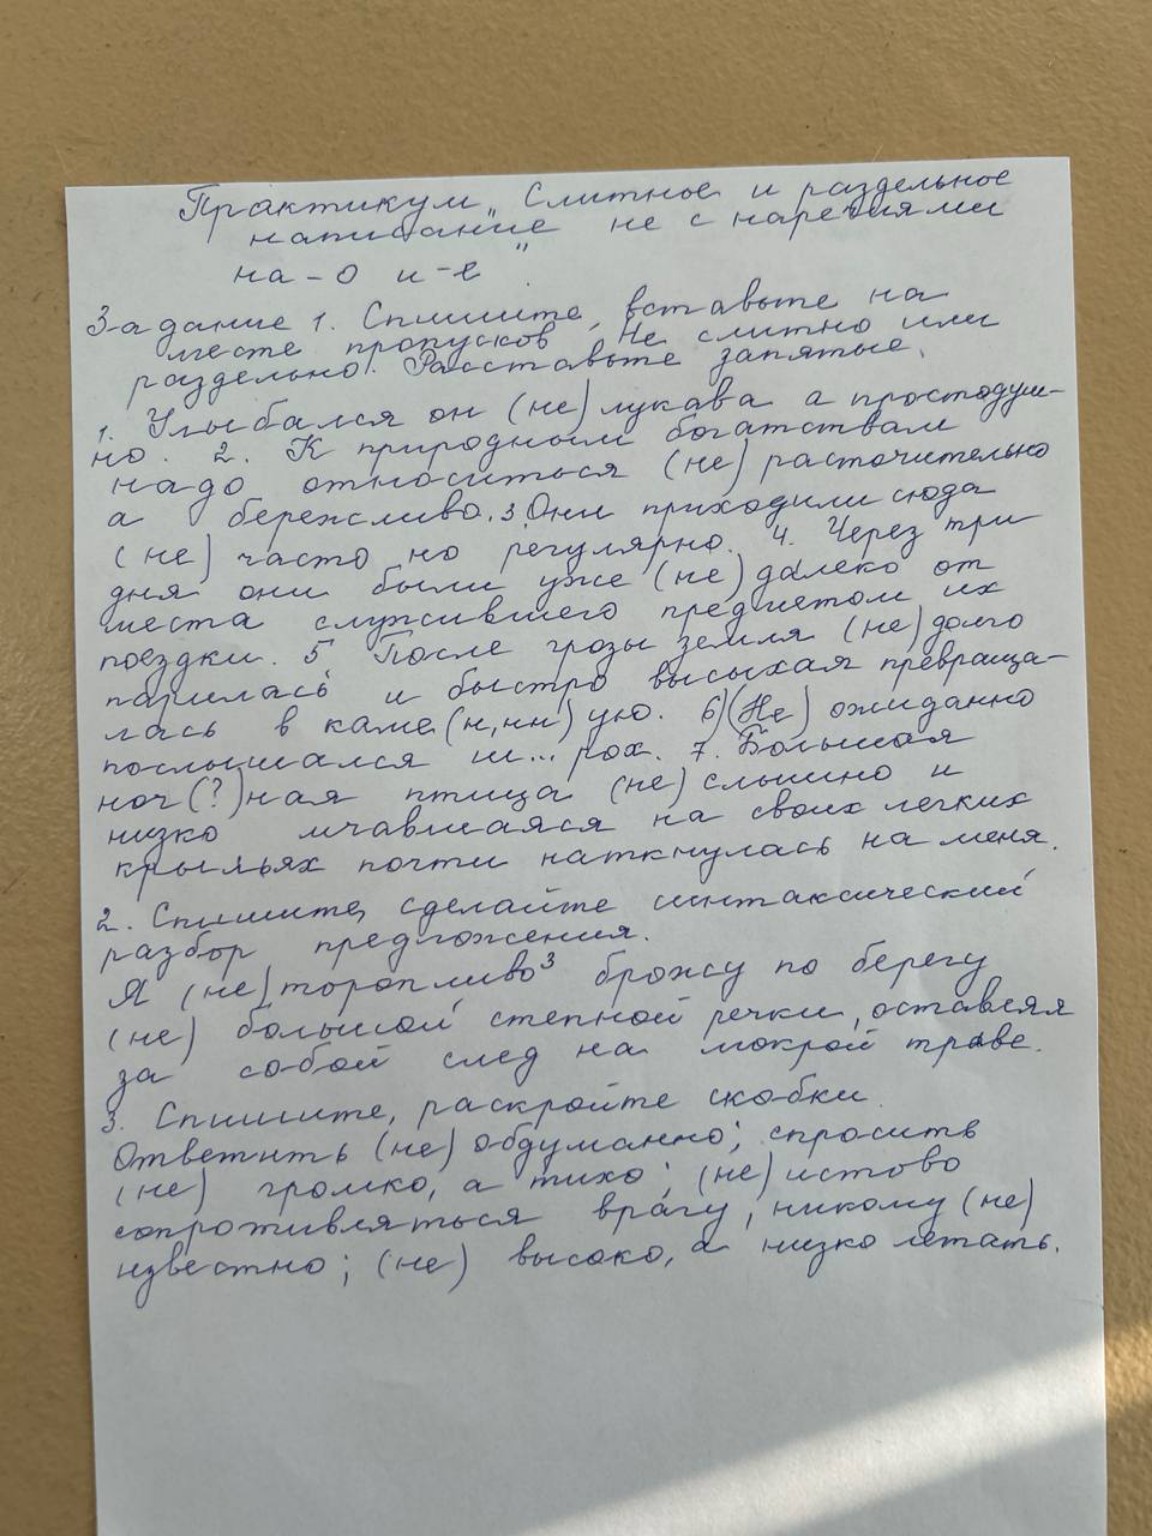 Практикум „Слитное и раздельное
написание не с наречиями
на -о и -е"
Задание 1. Спишите, вставьте на
месте пропусков Не слитно или
раздельно. Расставьте запятые.
1. Улыбался он (не) лукава а простодуш-
но. 2. К природным богатствам
надо относиться (не) расточительно
а бережливо. 3. Они приходили сюда
(не) часто но регулярно. 4. Через три
дня они были уже (не) далеко от
места служившего предметом их
поездки. 5. После грозы земля (не) долго
парилась и быстро высыхая превраща-
лась в каме(н,нн)ую. 6) (Не) ожиданно
послышался ш...рох. 7. Большая
ноч(?)ная птица (не) слышно и
низко мчавшаяся на своих легких
крыльях почти наткнулась на меня.
2. Спишите, сделайте синтаксический
разбор предложения.
Я (не) торопливо³ брожу по берегу
(не) большой степной речки, оставляя
за собой след на мокрой траве.
3. Спишите, раскройте скобки.
Ответить (не) обдуманно; спросить
(не) громко, а тихо; (не) истово
сопротивляться врагу; никому (не)
известно; (не) высоко, а низко летать.